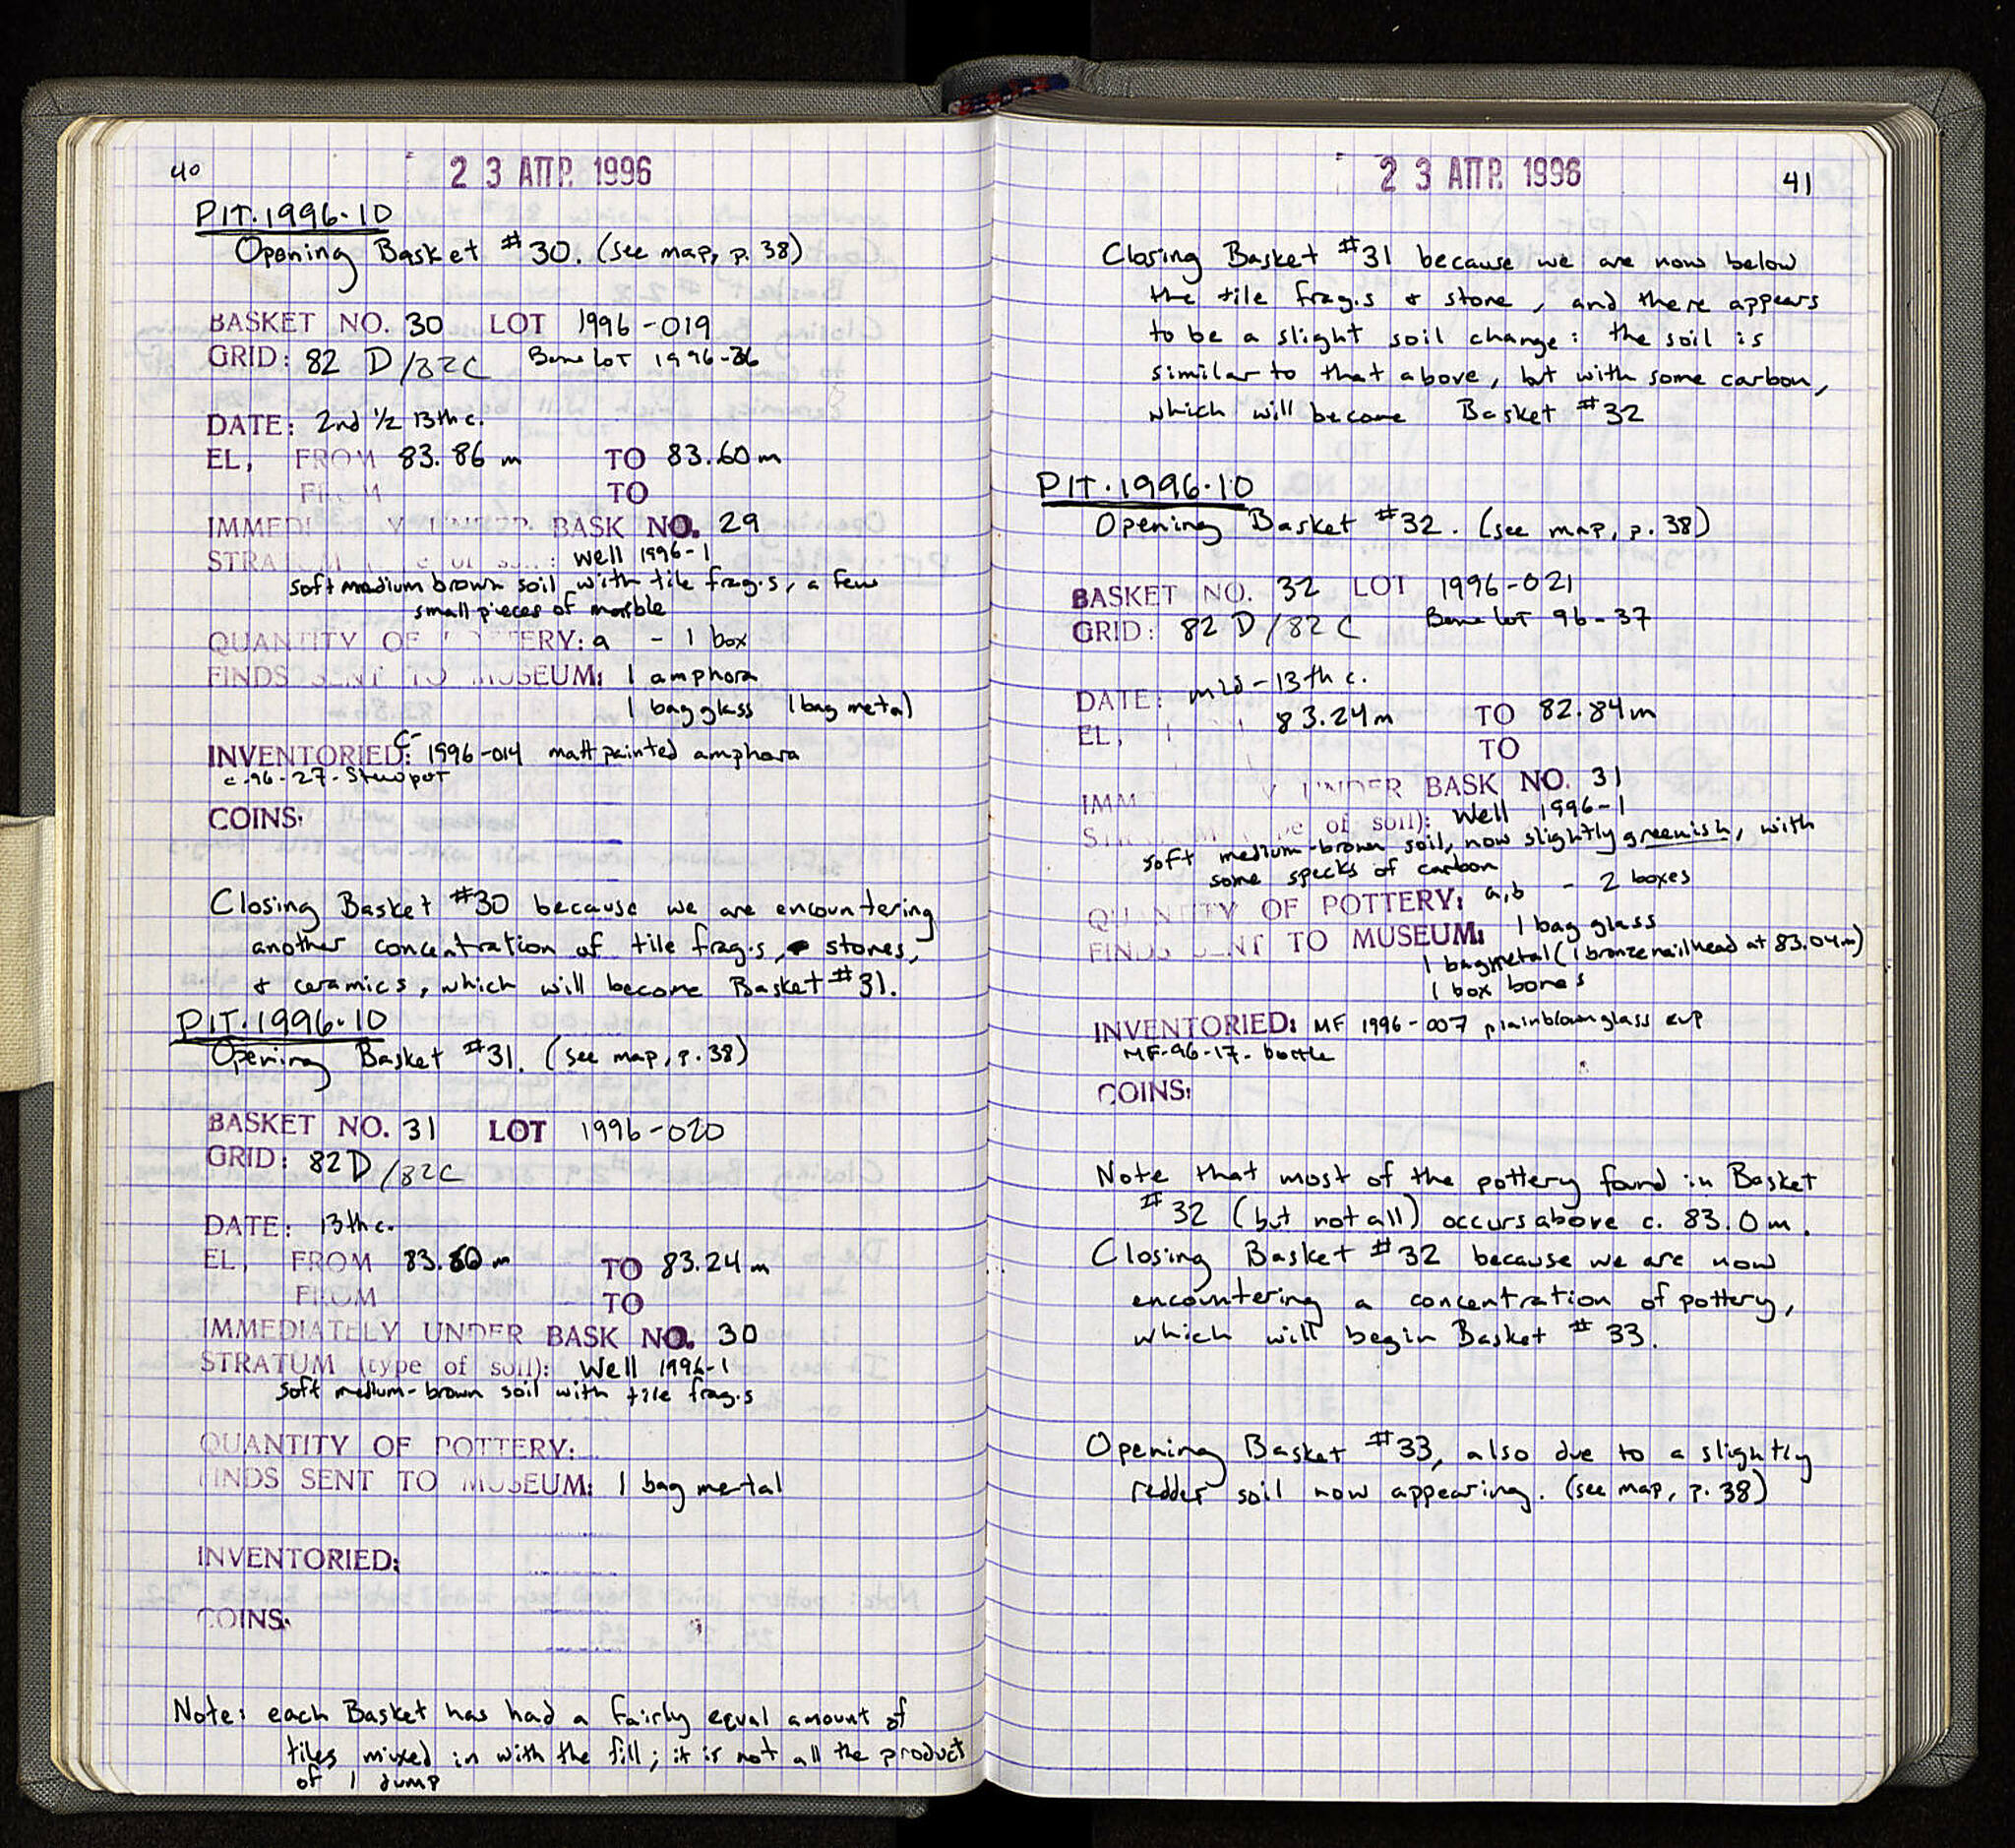 40
2 3 ΑΠΡ. 1996
PIT.1996.10
Opening Basket #30. (see map, p. 38)
BASKET NO. 30 LOT 1996-019
GRID: 82 D/82C Bone Lot 1996-36
DATE: 2nd ½ 13th c.
EL, FROM 83.86 m TO 83.60m
FROM TO
IMMEDI Y UNDER BASK NO. 29
STRATUM : well 1996-1
soft medium brown soil with tile frag.s, a few
small pieces of marble
QUANTITY OF POTTERY: a - 1 box
FINDS SENT TO MUSEUM: 1 amphora
1 bag glass 1 bag metal
INVENTORIED: C-1996-014 matt painted amphora
c-96-27-Stewpot
COINS:
Closing Basket #30 because we are encountering
another concentration of tile frag.s, stones,
& ceramics, which will become Basket #31.
PIT.1996.10
Opening Basket #31. (see map, p. 38)
BASKET NO. 31 LOT 1996-020
GRID: 82D/82C
DATE: 13th c.
EL, FROM 83.60m TO 83.24m
FROM TO
IMMEDIATELY UNDER BASK NO. 30
STRATUM (type of soil): Well 1996-1
soft medium-brown soil with tile frag.s
QUANTITY OF POTTERY:
FINDS SENT TO MUSEUM: 1 bag metal
INVENTORIED:
COINS:
Note: each Basket has had a fairly equal amount of
tiles mixed in with the fill; it is not all the product
of 1 dump
2 3 ΑΠΡ. 1996
41
Closing Basket #31 because we are now below
the tile frag.s & stone, and there appears
to be a slight soil change: the soil is
similar to that above, but with some carbon,
which will become Basket #32
PIT.1996.10
Opening Basket #32. (see map, p. 38)
BASKET NO. 32 LOT 1996-021
GRID: 82 D/82 C Bone Lot 96-37
DATE: mid-13th c.
EL, 83.24m TO 82.84m
TO
IMM Y UNDER BASK NO. 31
STRATUM (type of soil): Well 1996-1
soft medium-brown soil, now slightly greenish, with
some specks of carbon
QUANTITY OF POTTERY: a,b - 2 boxes
FINDS SENT TO MUSEUM: 1 bag glass
1 bag metal (1 bronze nail head at 83.04m)
1 box bones
INVENTORIED: MF 1996-007 plain blown glass cup
MF-96-17- bottle
COINS:
Note that most of the pottery found in Basket
#32 (but not all) occurs above c. 83.0m.
Closing Basket #32 because we are now
encountering a concentration of pottery,
which will begin Basket #33.
Opening Basket #33, also due to a slightly
redder soil now appearing. (see map, p. 38)